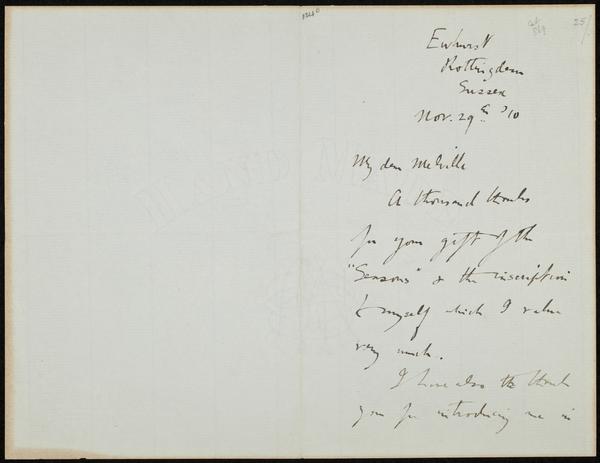 25/
Ewhurst
Rottingdean
Sussex
Nov. 29th '10
My dear Melville
A thousand thanks
for your gift of the
"Seasons" & the inscription
to myself which I value
very much.
I have also to thank
you for introducing me in